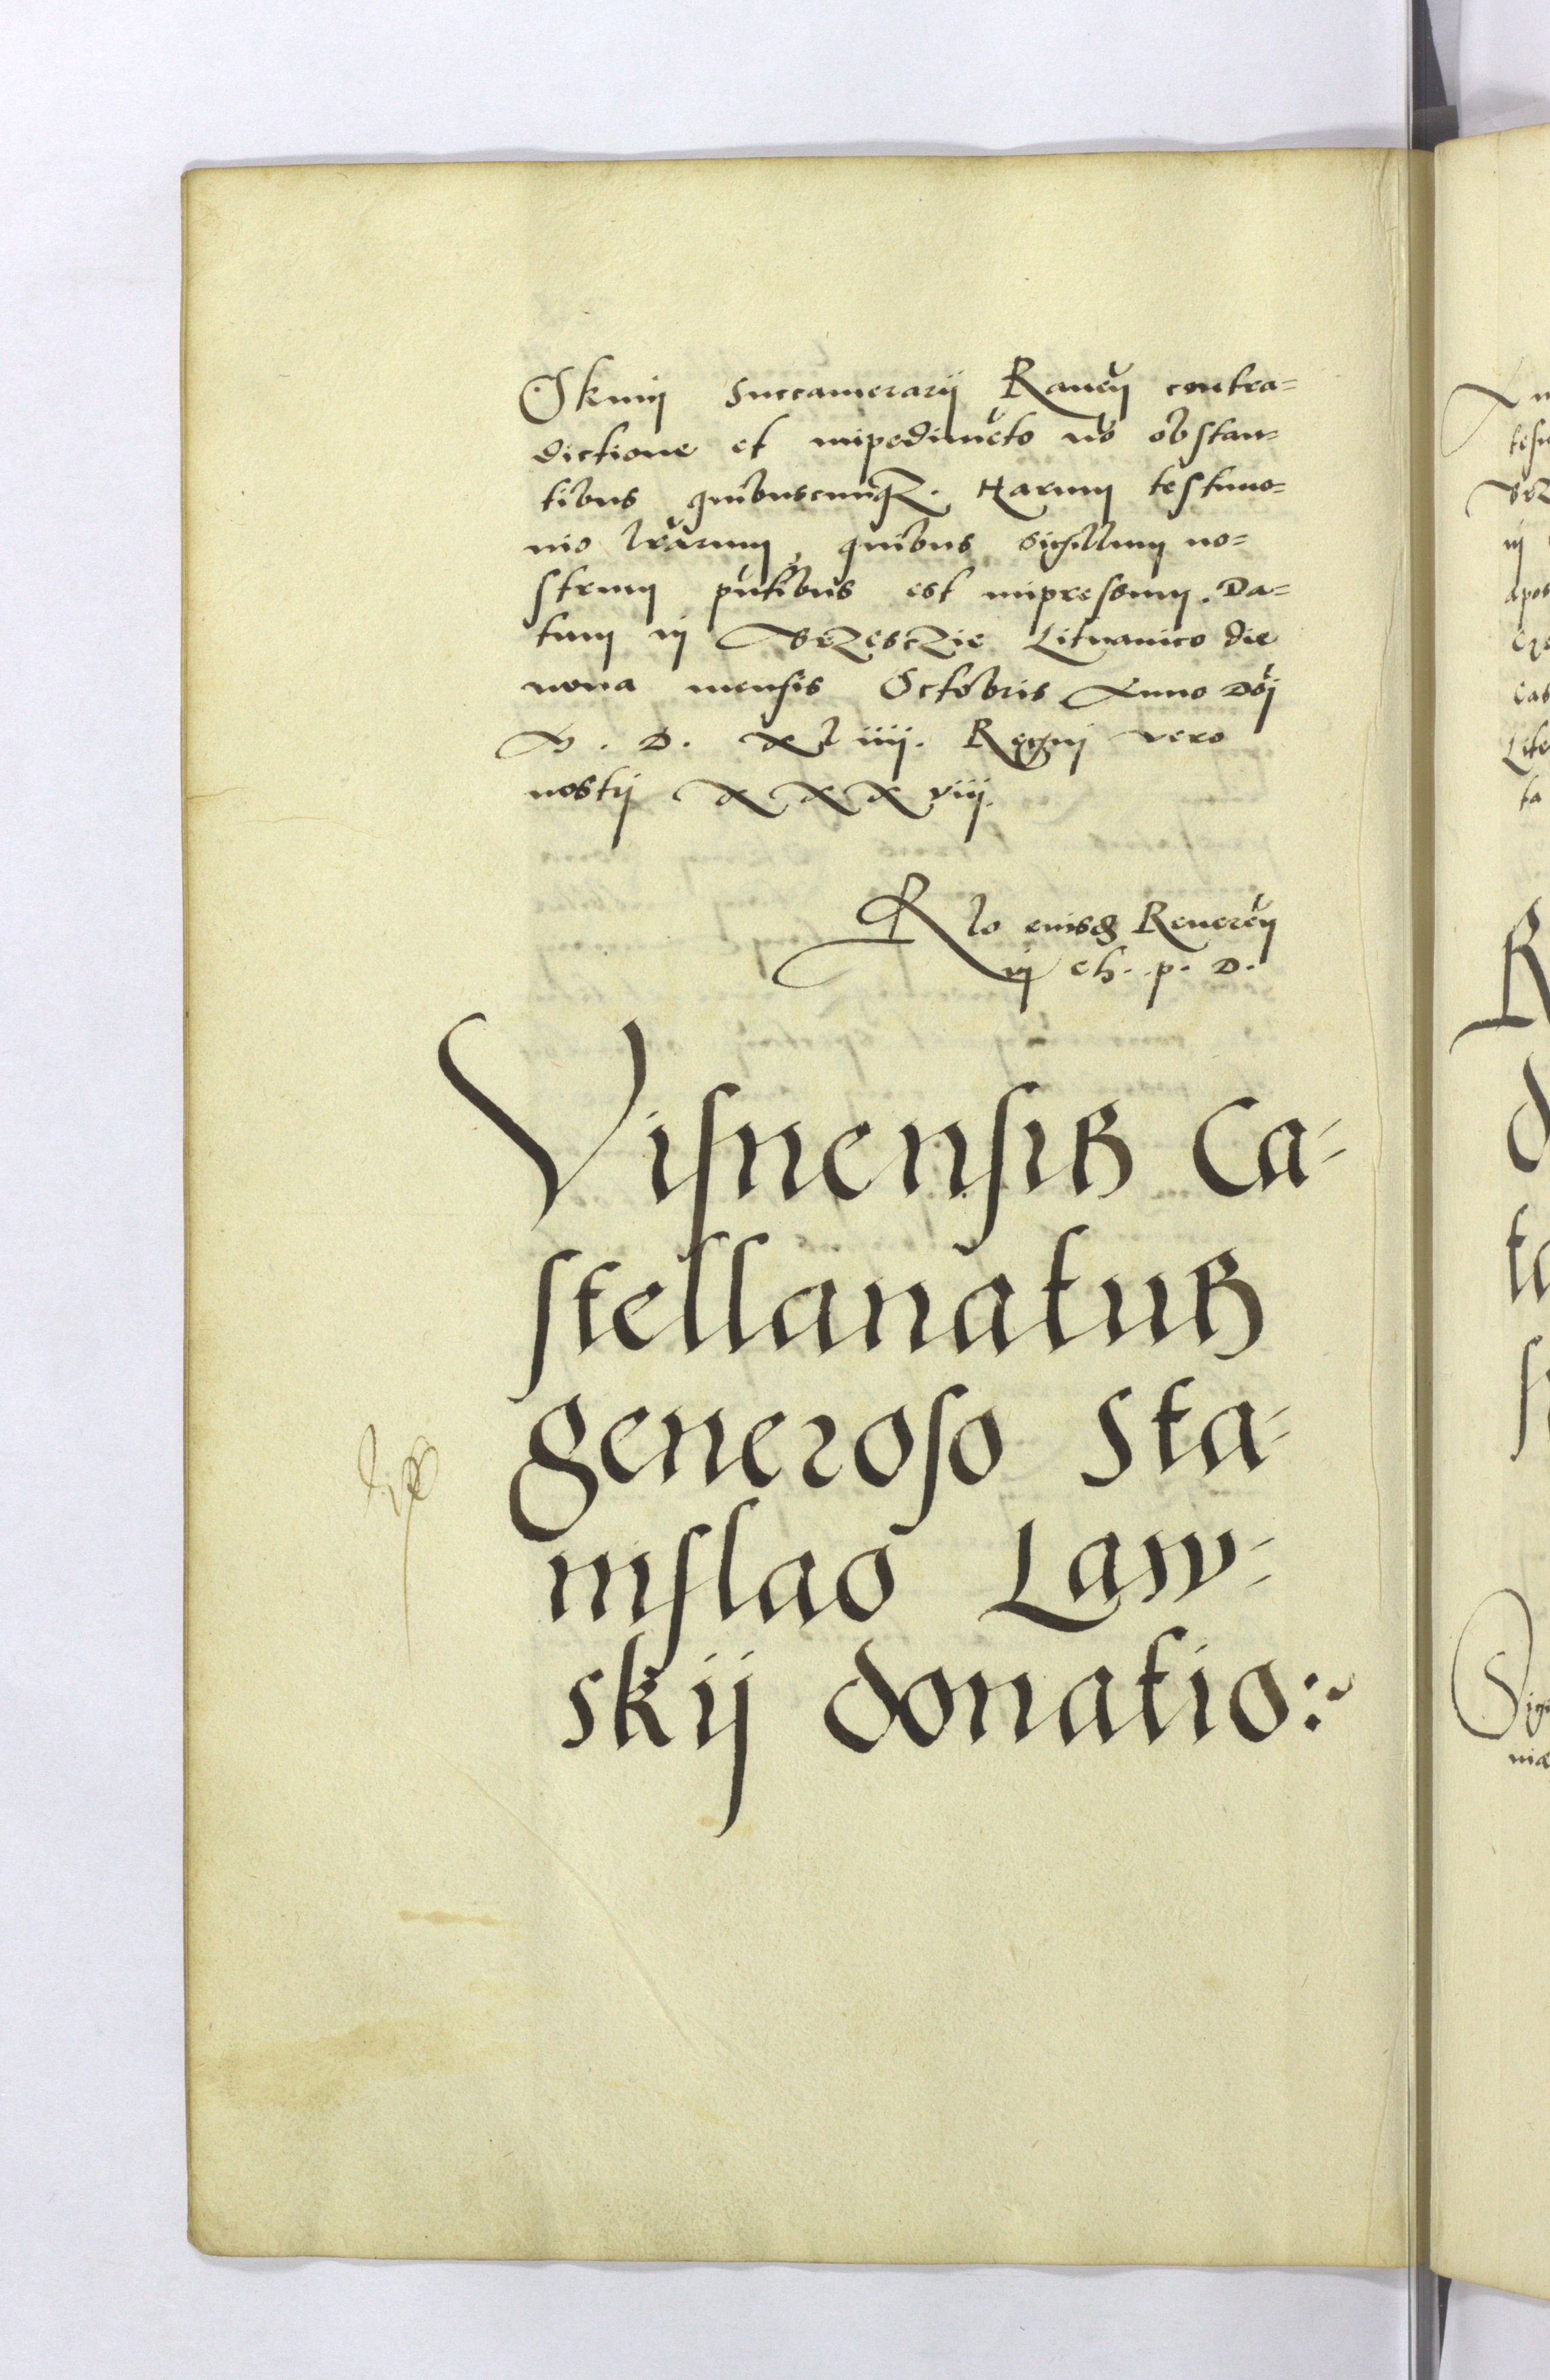 Okunij Succamerarij Raueñ contra=
dictione et impedimẽto nõ obstan=
tibus quibuscunqꝫ. Harum testimo=
nio lr̃arum, quibus sigillum no=
strum pñtibus est impressum. Da=
tum in Brzesczie Lituanico die
nona mensis Octobris Anno Dñi
M. D. xliiij. Regni vero
nostrj xxxviij.
Rlo eiusd Reuereñ
in Ch. p. D.
Visnensis Ca-
stellanatus
generoso Sta-
nislao Law-
skij donatio:~